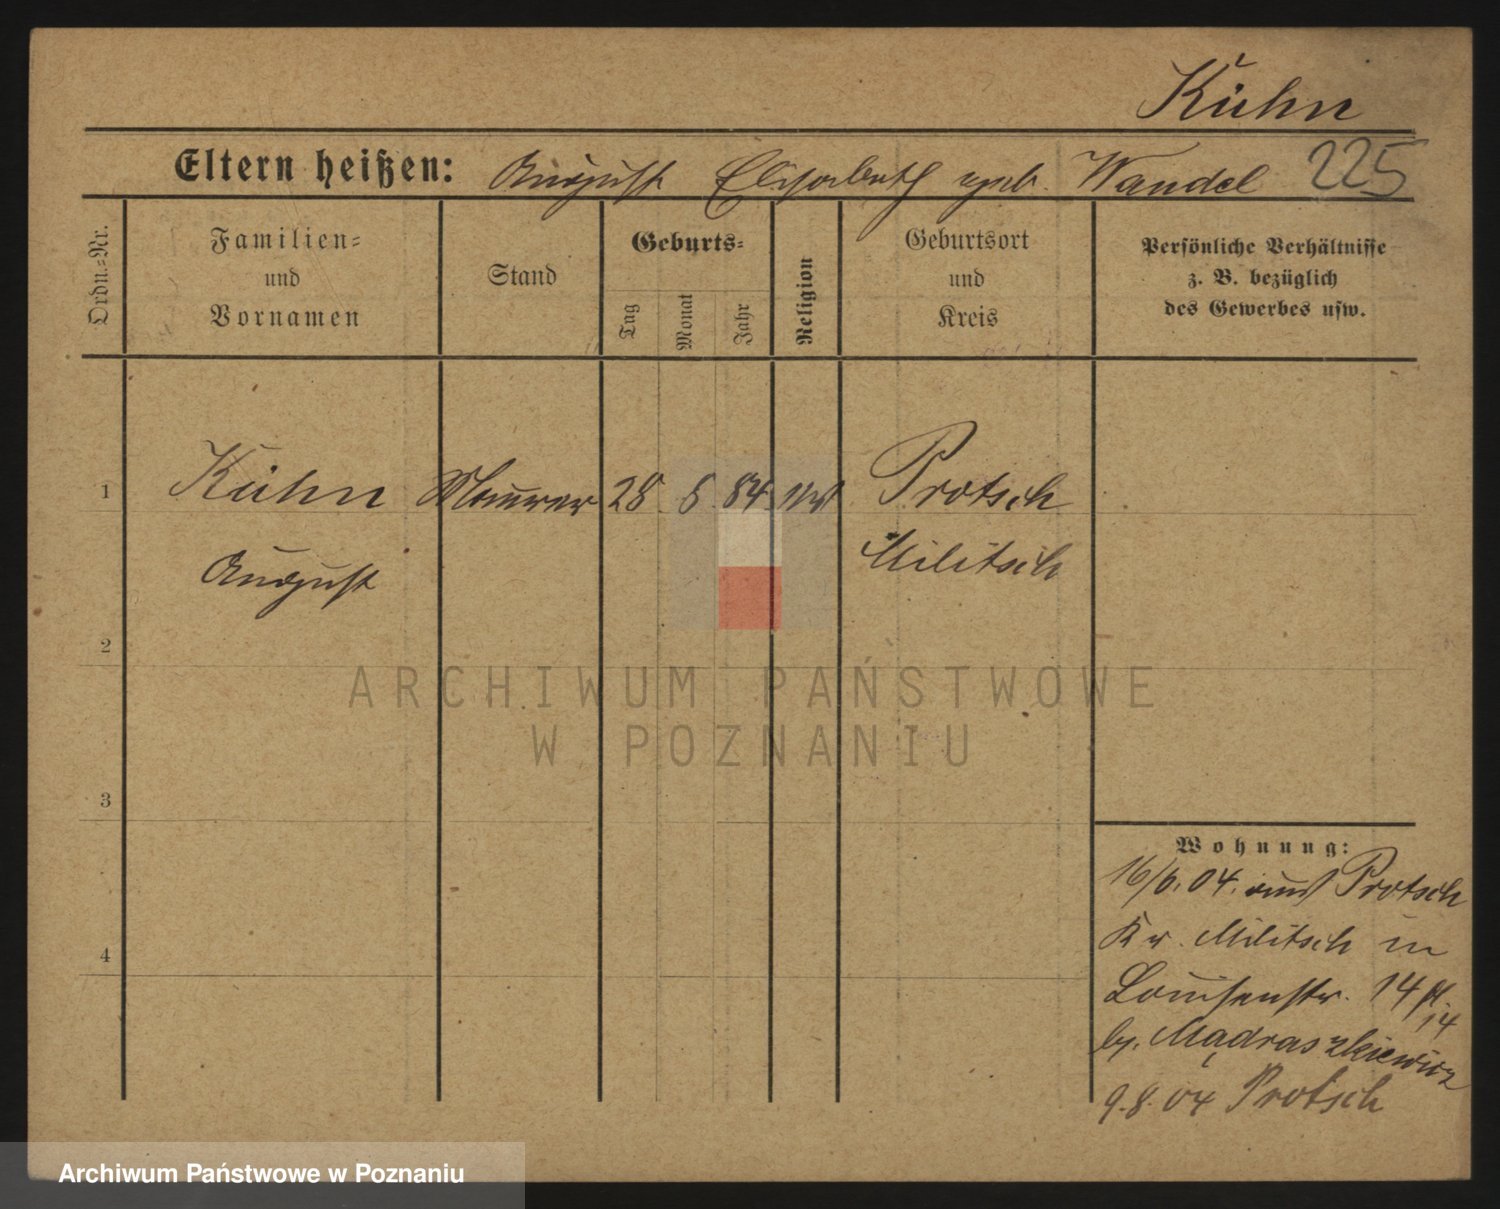 Kühn
Eltern heißen: August Elisabeth geb. Wandel 225
Ordn.-Nr.
Familien-
und
Vornamen
Stand
Geburts-
Tag
Monat
Jahr
Religion
Geburtsort
und
Kreis
Persönliche Verhältnisse
z. B. bezüglich
des Gewerbes usw.
1 Kühn Maurer 28 8 84 Protsch
August Militsch
2
3
4
ARCHIWUM PAŃSTWOWE
W POZNANIU
Wohnung:
16/6.04. aus Protsch
Kr. Militsch in
Louisenstr. 14
14
by. Mądraszkiewicz
9.8.04 Protsch
Archiwum Państwowe w Poznaniu